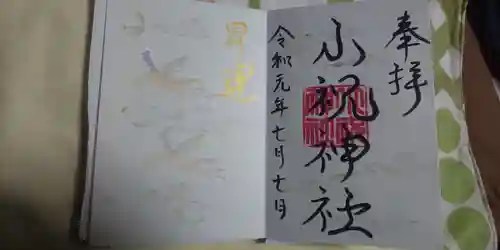 奉拝
小祝神社
令和元年七月七日
昇運